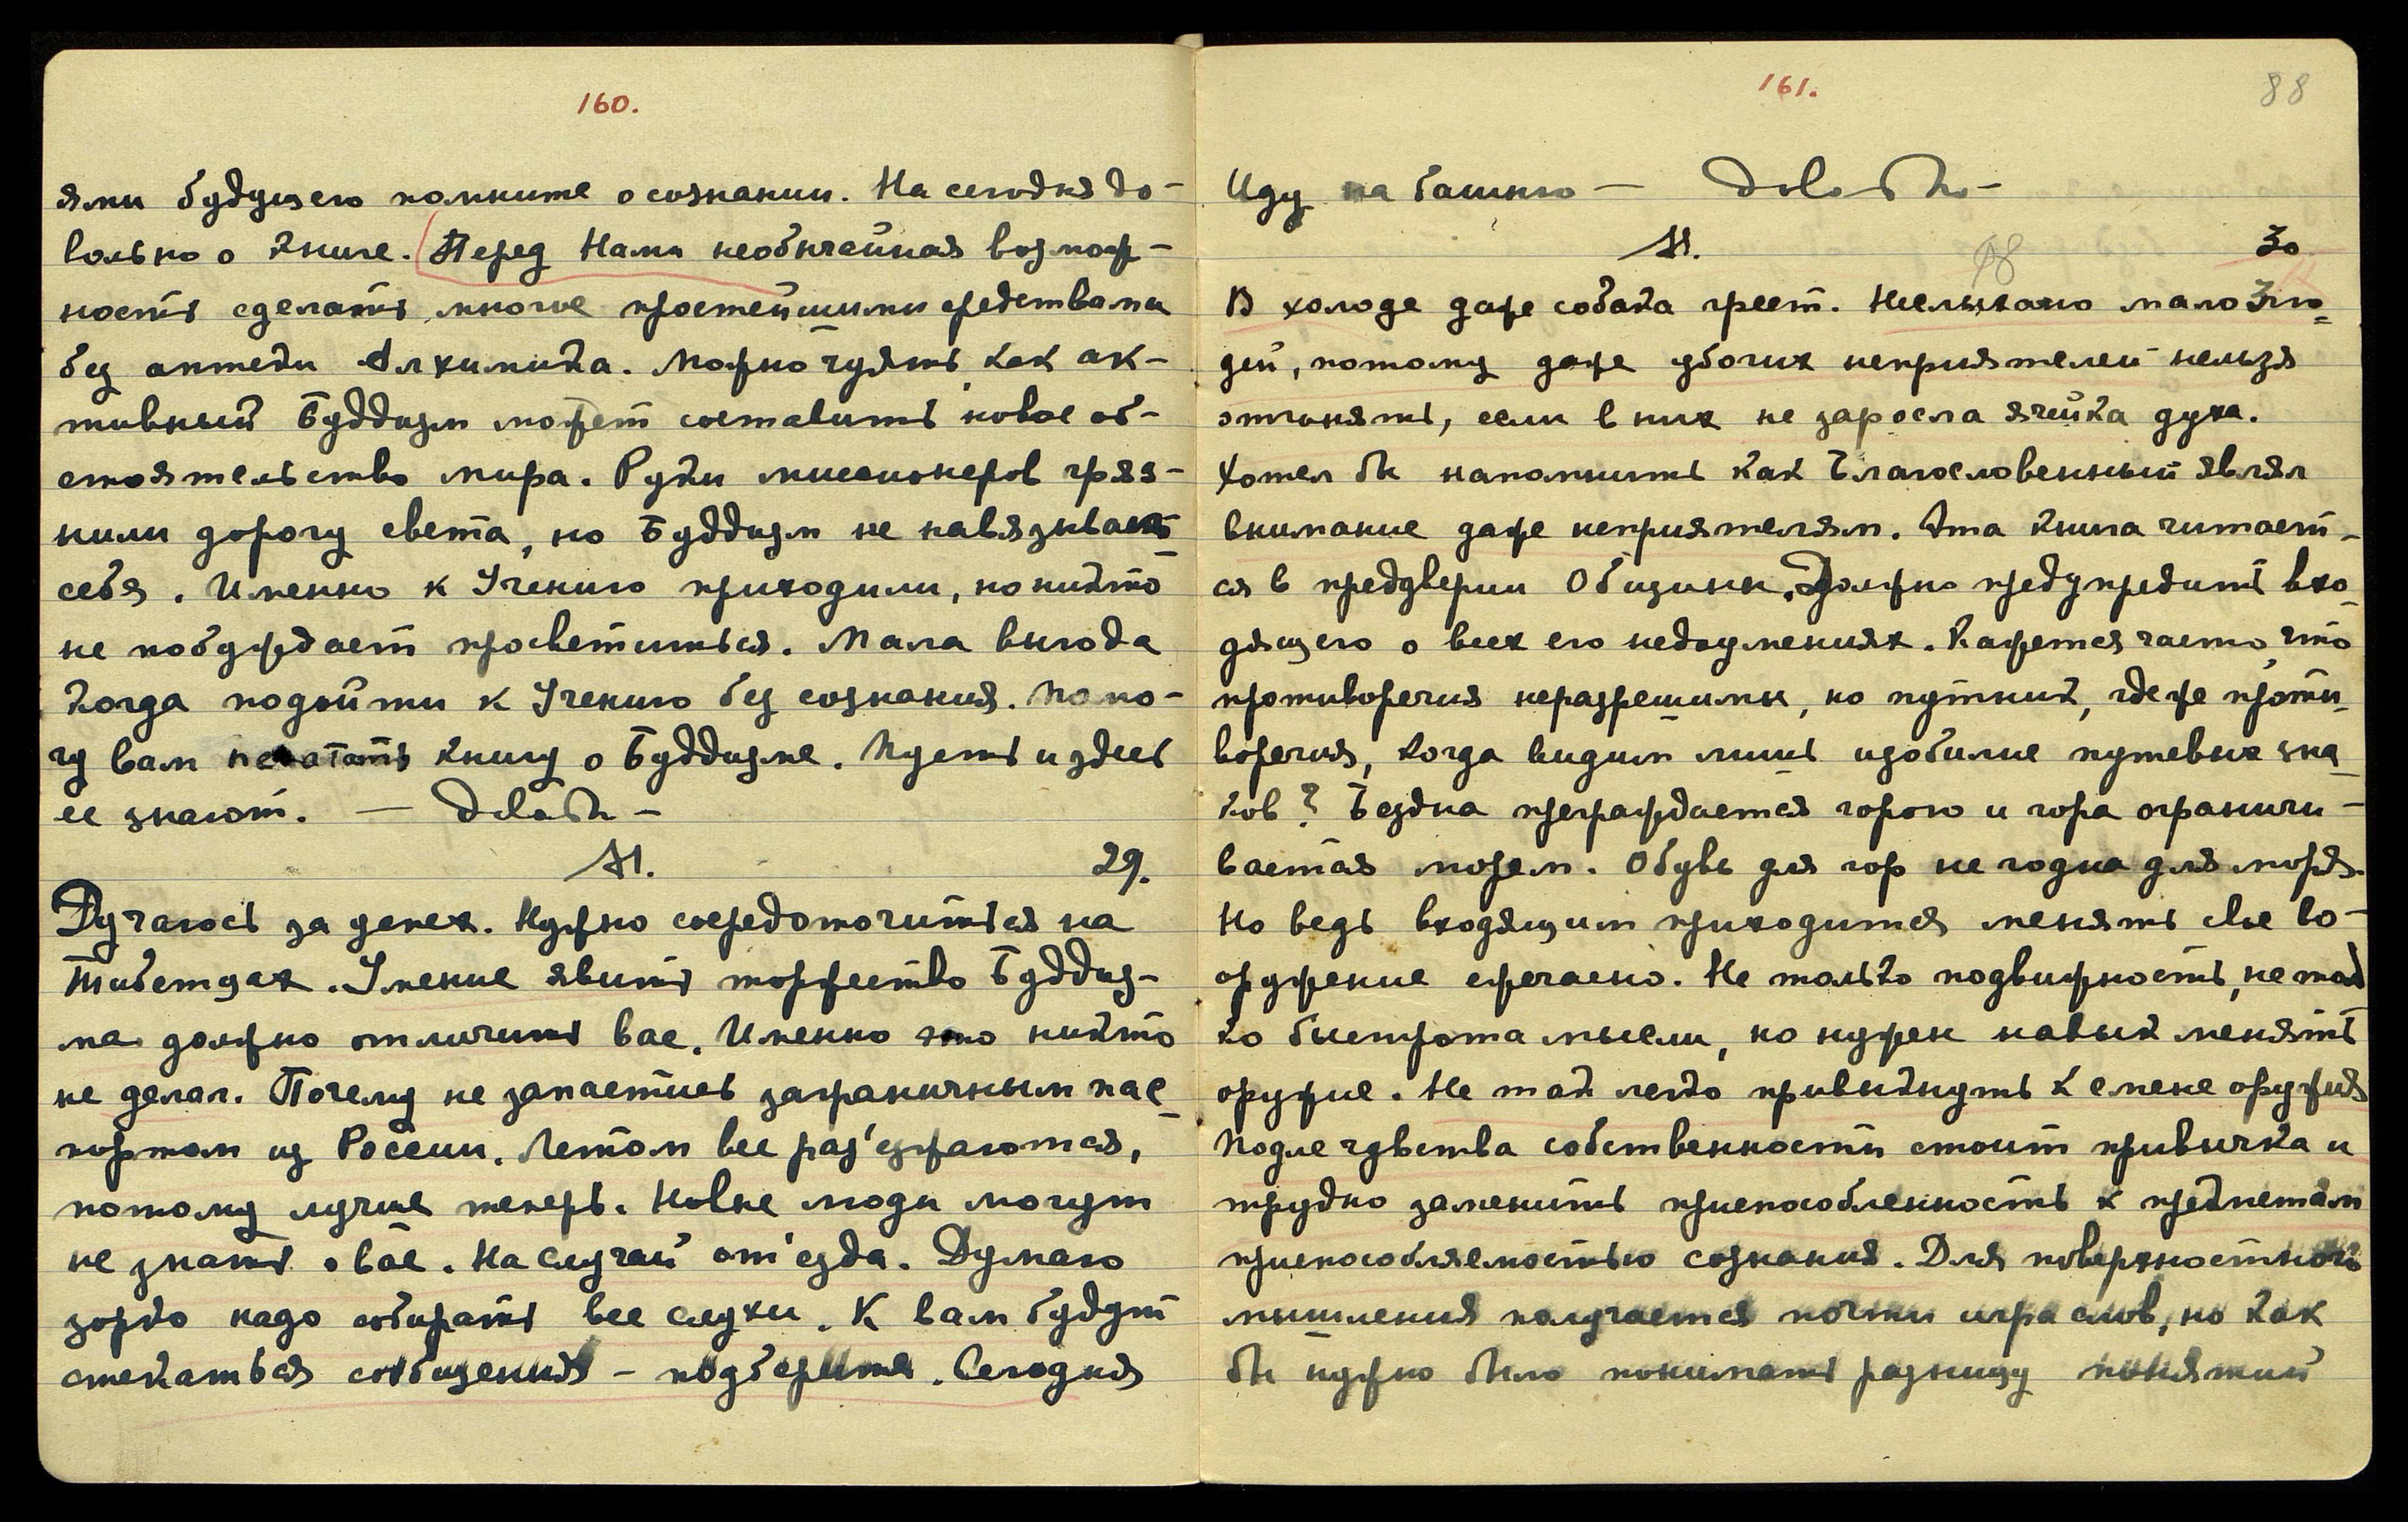 160.
ями будущего помните о сознании. На сегодня до-
вольно о книге. Перед Нами необычайная возмож-
ность сделать многое простейшими средствами
без аптеки Алхимика. Можно чуять как ак-
тивный Буддизм может составить новое об-
стоятельство мира. Руки миссионеров гряз-
нили дорогу света, но Буддизм не навязывает
себя. Именно к Учению приходили, но никто
не побуждает просветиться. Мала выгода
когда подойти к Учению без сознания. Помо-
гу вам печатать книгу о Буддизме. Пусть и здесь
ее знают. —
М. 29.
Ручаюсь за успех. Нужно сосредоточиться на
Тибетцах. Умение явить торжество Буддиз-
ма должно отличить вас. Именно это никто
не делал. Почему не запастись заграничным пас-
портом из России. Летом все раз'езжаются,
потому лучше теперь. Новые люди могут
не знать о вас. На случай от'езда. Думаю
зорко надо собирать все слухи. К вам будут
стекаться сообщения — подберите. Сегодня
161. 88
Иду на башню —
М. 98 30
В холоде даже собака греет. Неслыхано мало лю-
дей, потому даже убогих неприятелей нельзя
отгонять, если в них не заросла ячейка духа.
Хотел бы напомнить как Благословенный являл
внимание даже неприятелям. Эта книга читает-
ся в предверии Общины. Должно предупредить вхо-
дящего о всех его недоумениях. Кажется часто, что
противоречия неразрешимы, но путник, где же проти-
воречия, когда видим лишь изобилие путевых зна-
ков? Бездна преграждается горою и гора ограничи-
вается морем. Обувь для гор не годна для моря.
Но ведь входящим приходится менять свое во-
оружение ежечасно. Не только подвижность, не толь
ко быстрота мысли, но нужен навык менять
оружие. Не так легко привыкнуть к смене оружия
Подле чувства собственности стоит привычка и
трудно заменить приспособленность к предметам
приспособляемостью сознания. Для поверхностного
мышления получается почти игра слов, но как
бы нужно было понимать разницу понятий